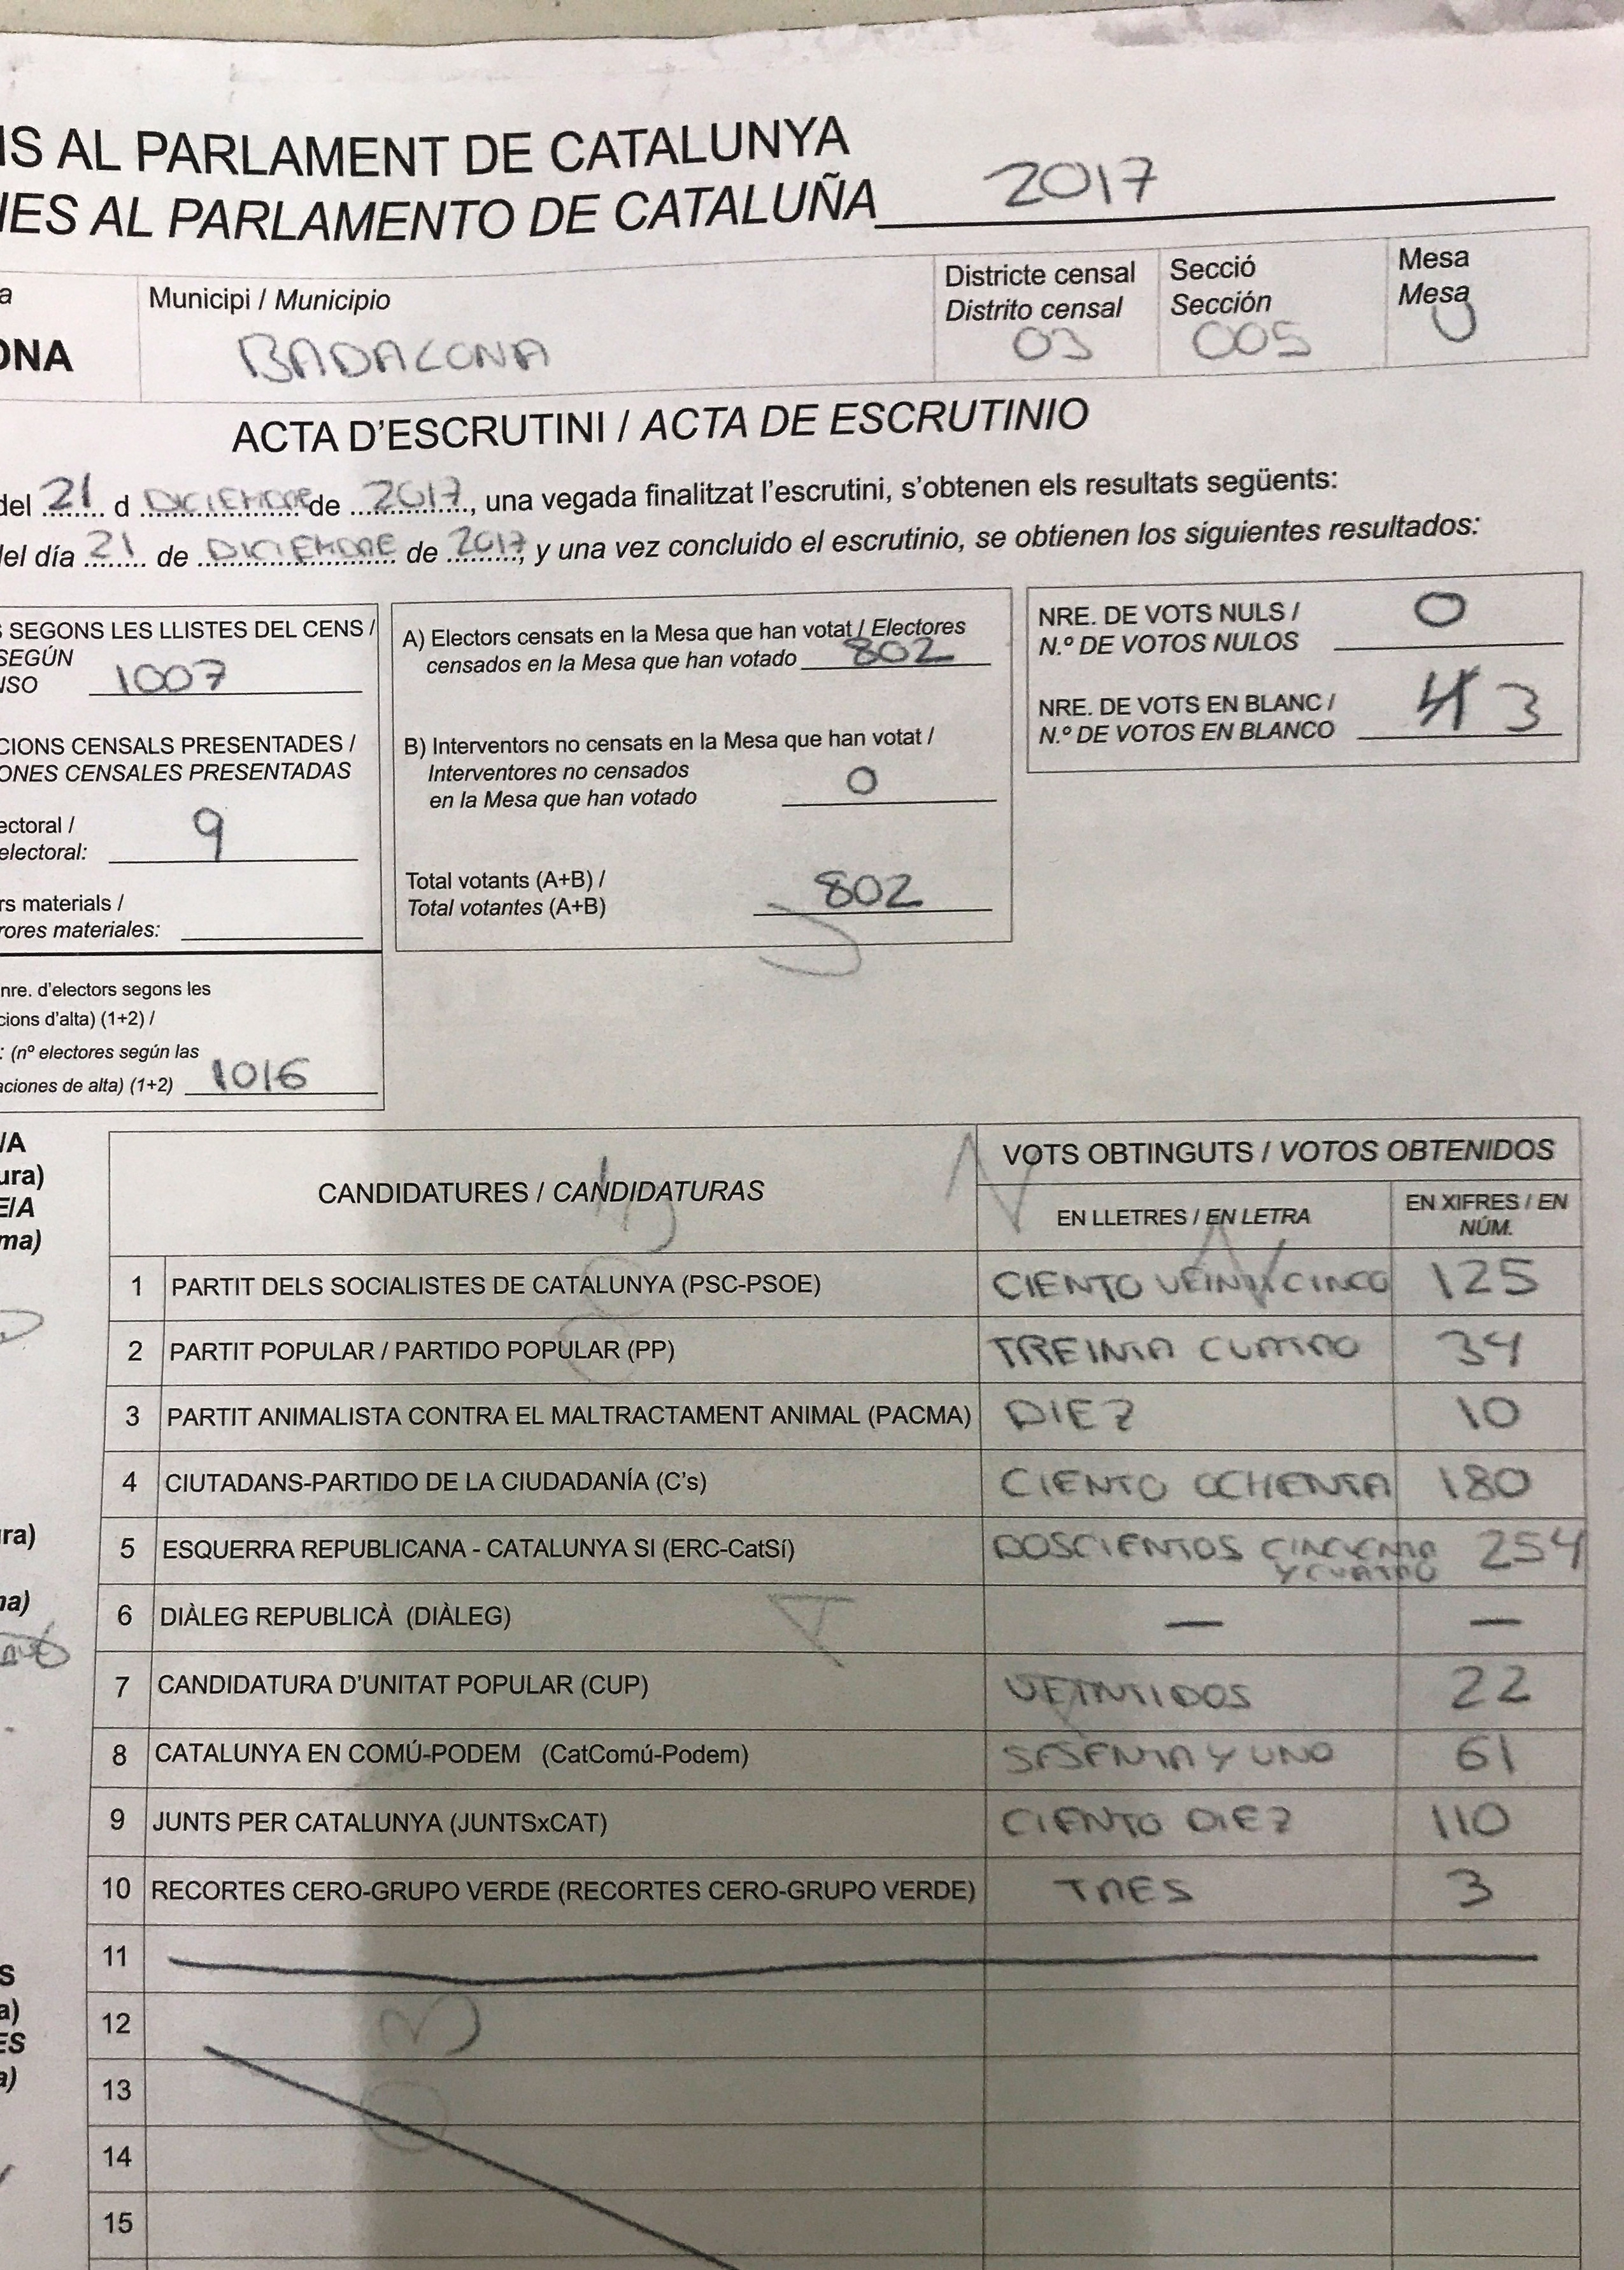 NS AL PARLAMENT DE CATALUNYA
NES AL PARLAMENTO DE CATALUÑA 2017
Municipi / Municipio
BADALONA
Districte censal
Distrito censal
03
Secció
Sección
005
Mesa
Mesa
U
ONA
ACTA D'ESCRUTINI / ACTA DE ESCRUTINIO
del 21 d DICIEMBRE de 2017, una vegada finalitzat l'escrutini, s'obtenen els resultats següents:
del día 21 de DICIEMBRE de 2017, y una vez concluido el escrutinio, se obtienen los siguientes resultados:
S SEGONS LES LLISTES DEL CENS /
SEGÚN
NSO 1007
CIONS CENSALS PRESENTADES /
ONES CENSALES PRESENTADAS
ectoral /
electoral: 9
rs materials /
rores materiales:
nre. d'electors segons les
cions d'alta) (1+2) /
: (nº electores según las
aciones de alta) (1+2) 1016
A) Electors censats en la Mesa que han votat / Electores
censados en la Mesa que han votado 802
B) Interventors no censats en la Mesa que han votat /
Interventores no censados
en la Mesa que han votado 0
Total votants (A+B) /
Total votantes (A+B) 802
NRE. DE VOTS NULS /
N.º DE VOTOS NULOS 0
NRE. DE VOTS EN BLANC /
N.º DE VOTOS EN BLANCO 3
CANDIDATURES / CANDIDATURAS
VOTS OBTINGUTS / VOTOS OBTENIDOS
EN LLETRES / EN LETRA
EN XIFRES / EN NÚM.
1 PARTIT DELS SOCIALISTES DE CATALUNYA (PSC-PSOE) CIENTO VEINTICINCO 125
2 PARTIT POPULAR / PARTIDO POPULAR (PP) TREINTA CUATRO 34
3 PARTIT ANIMALISTA CONTRA EL MALTRACTAMENT ANIMAL (PACMA) DIEZ 10
4 CIUTADANS-PARTIDO DE LA CIUDADANÍA (C's) CIENTO OCHENTA 180
5 ESQUERRA REPUBLICANA - CATALUNYA SI (ERC-CatSí) DOSCIENTOS CINCUENTA Y CUATRO 254
6 DIÀLEG REPUBLICÀ (DIÀLEG) — —
7 CANDIDATURA D'UNITAT POPULAR (CUP) VEINTIDOS 22
8 CATALUNYA EN COMÚ-PODEM (CatComú-Podem) SESENTA Y UNO 61
9 JUNTS PER CATALUNYA (JUNTSxCAT) CIENTO DIEZ 110
10 RECORTES CERO-GRUPO VERDE (RECORTES CERO-GRUPO VERDE) TRES 3
11
12
13
14
15